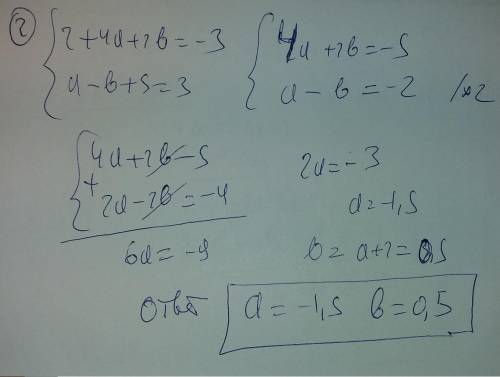 2) { 2+4a+2b=-3
a-b+5=3
{ 4a+2b=-5
a-b=-2 /×2
{ 4a+2b=-5
+
2a-2b=-4
6a=-9
2a=-3
a=-1,5
b=a+2=0,5
Ответ a=-1,5 b=0,5